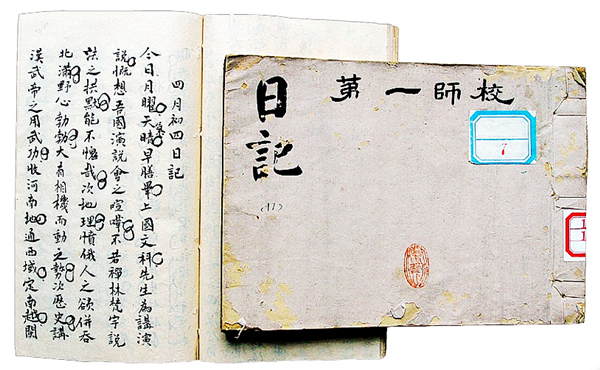 四月初四日記
今日月曜天晴早膳畢上國文科先生為講演
說慨想吾國演說會之喧嘩不若禪林梵宇說
法之拱默能不愧哉次地理憤俄人之欲併吞
北滿野心勃勃大有相機而動之勢次歷史講
漢武帝之用武功收河南地通西域定南越開
第一師校
日記
(17)
7